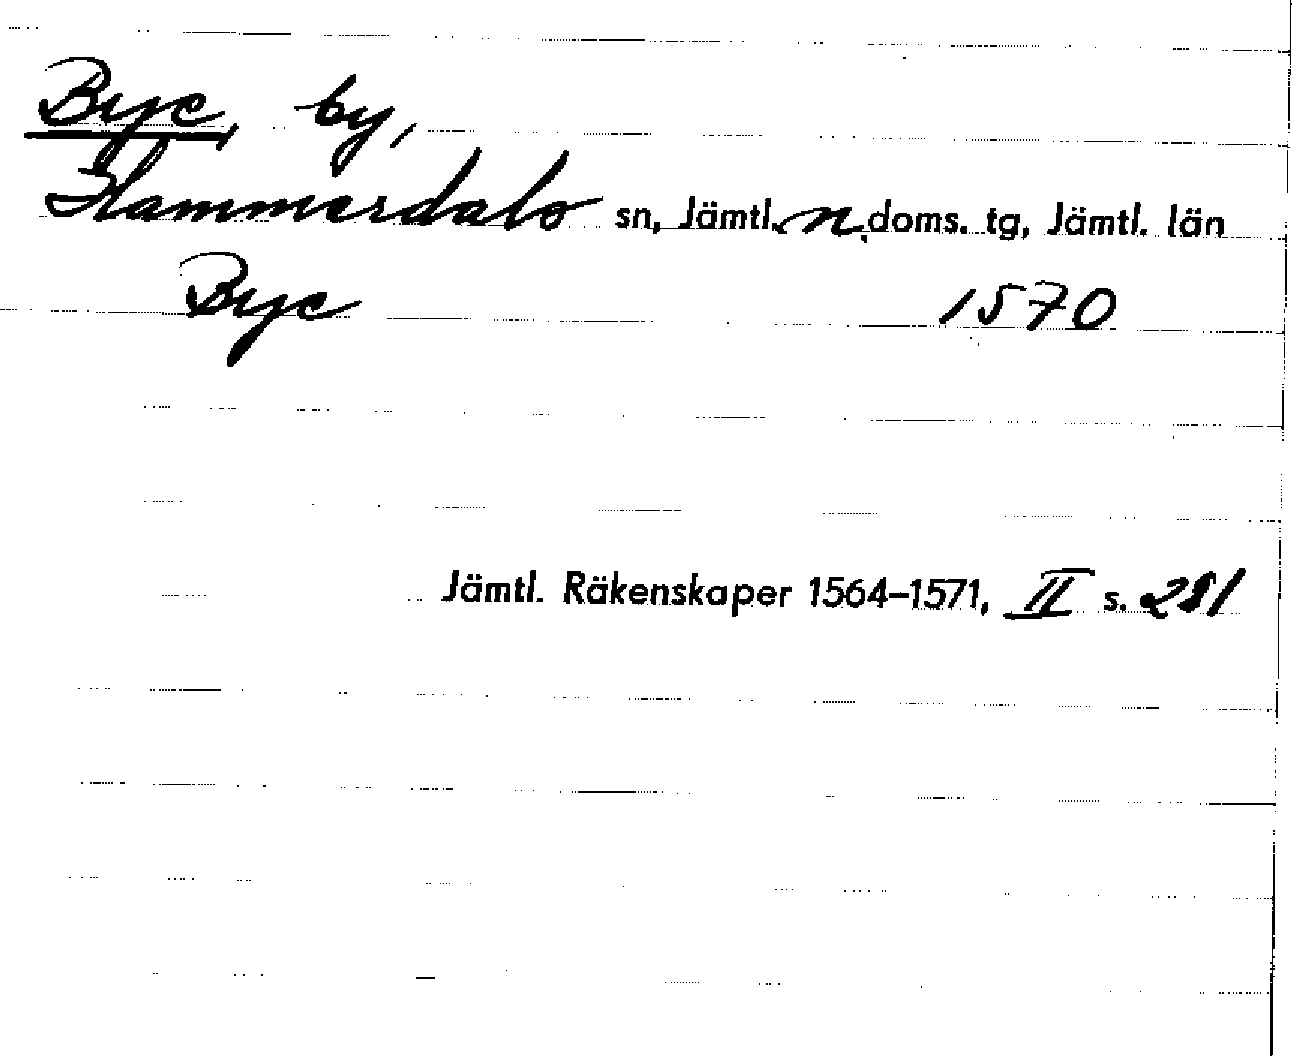 Bye, by,
Hammerdals sn, Jämtl. n. doms. tg, Jämtl. län
Bye 1570
Jämtl. Räkenskaper 1564–1571, II s. 281